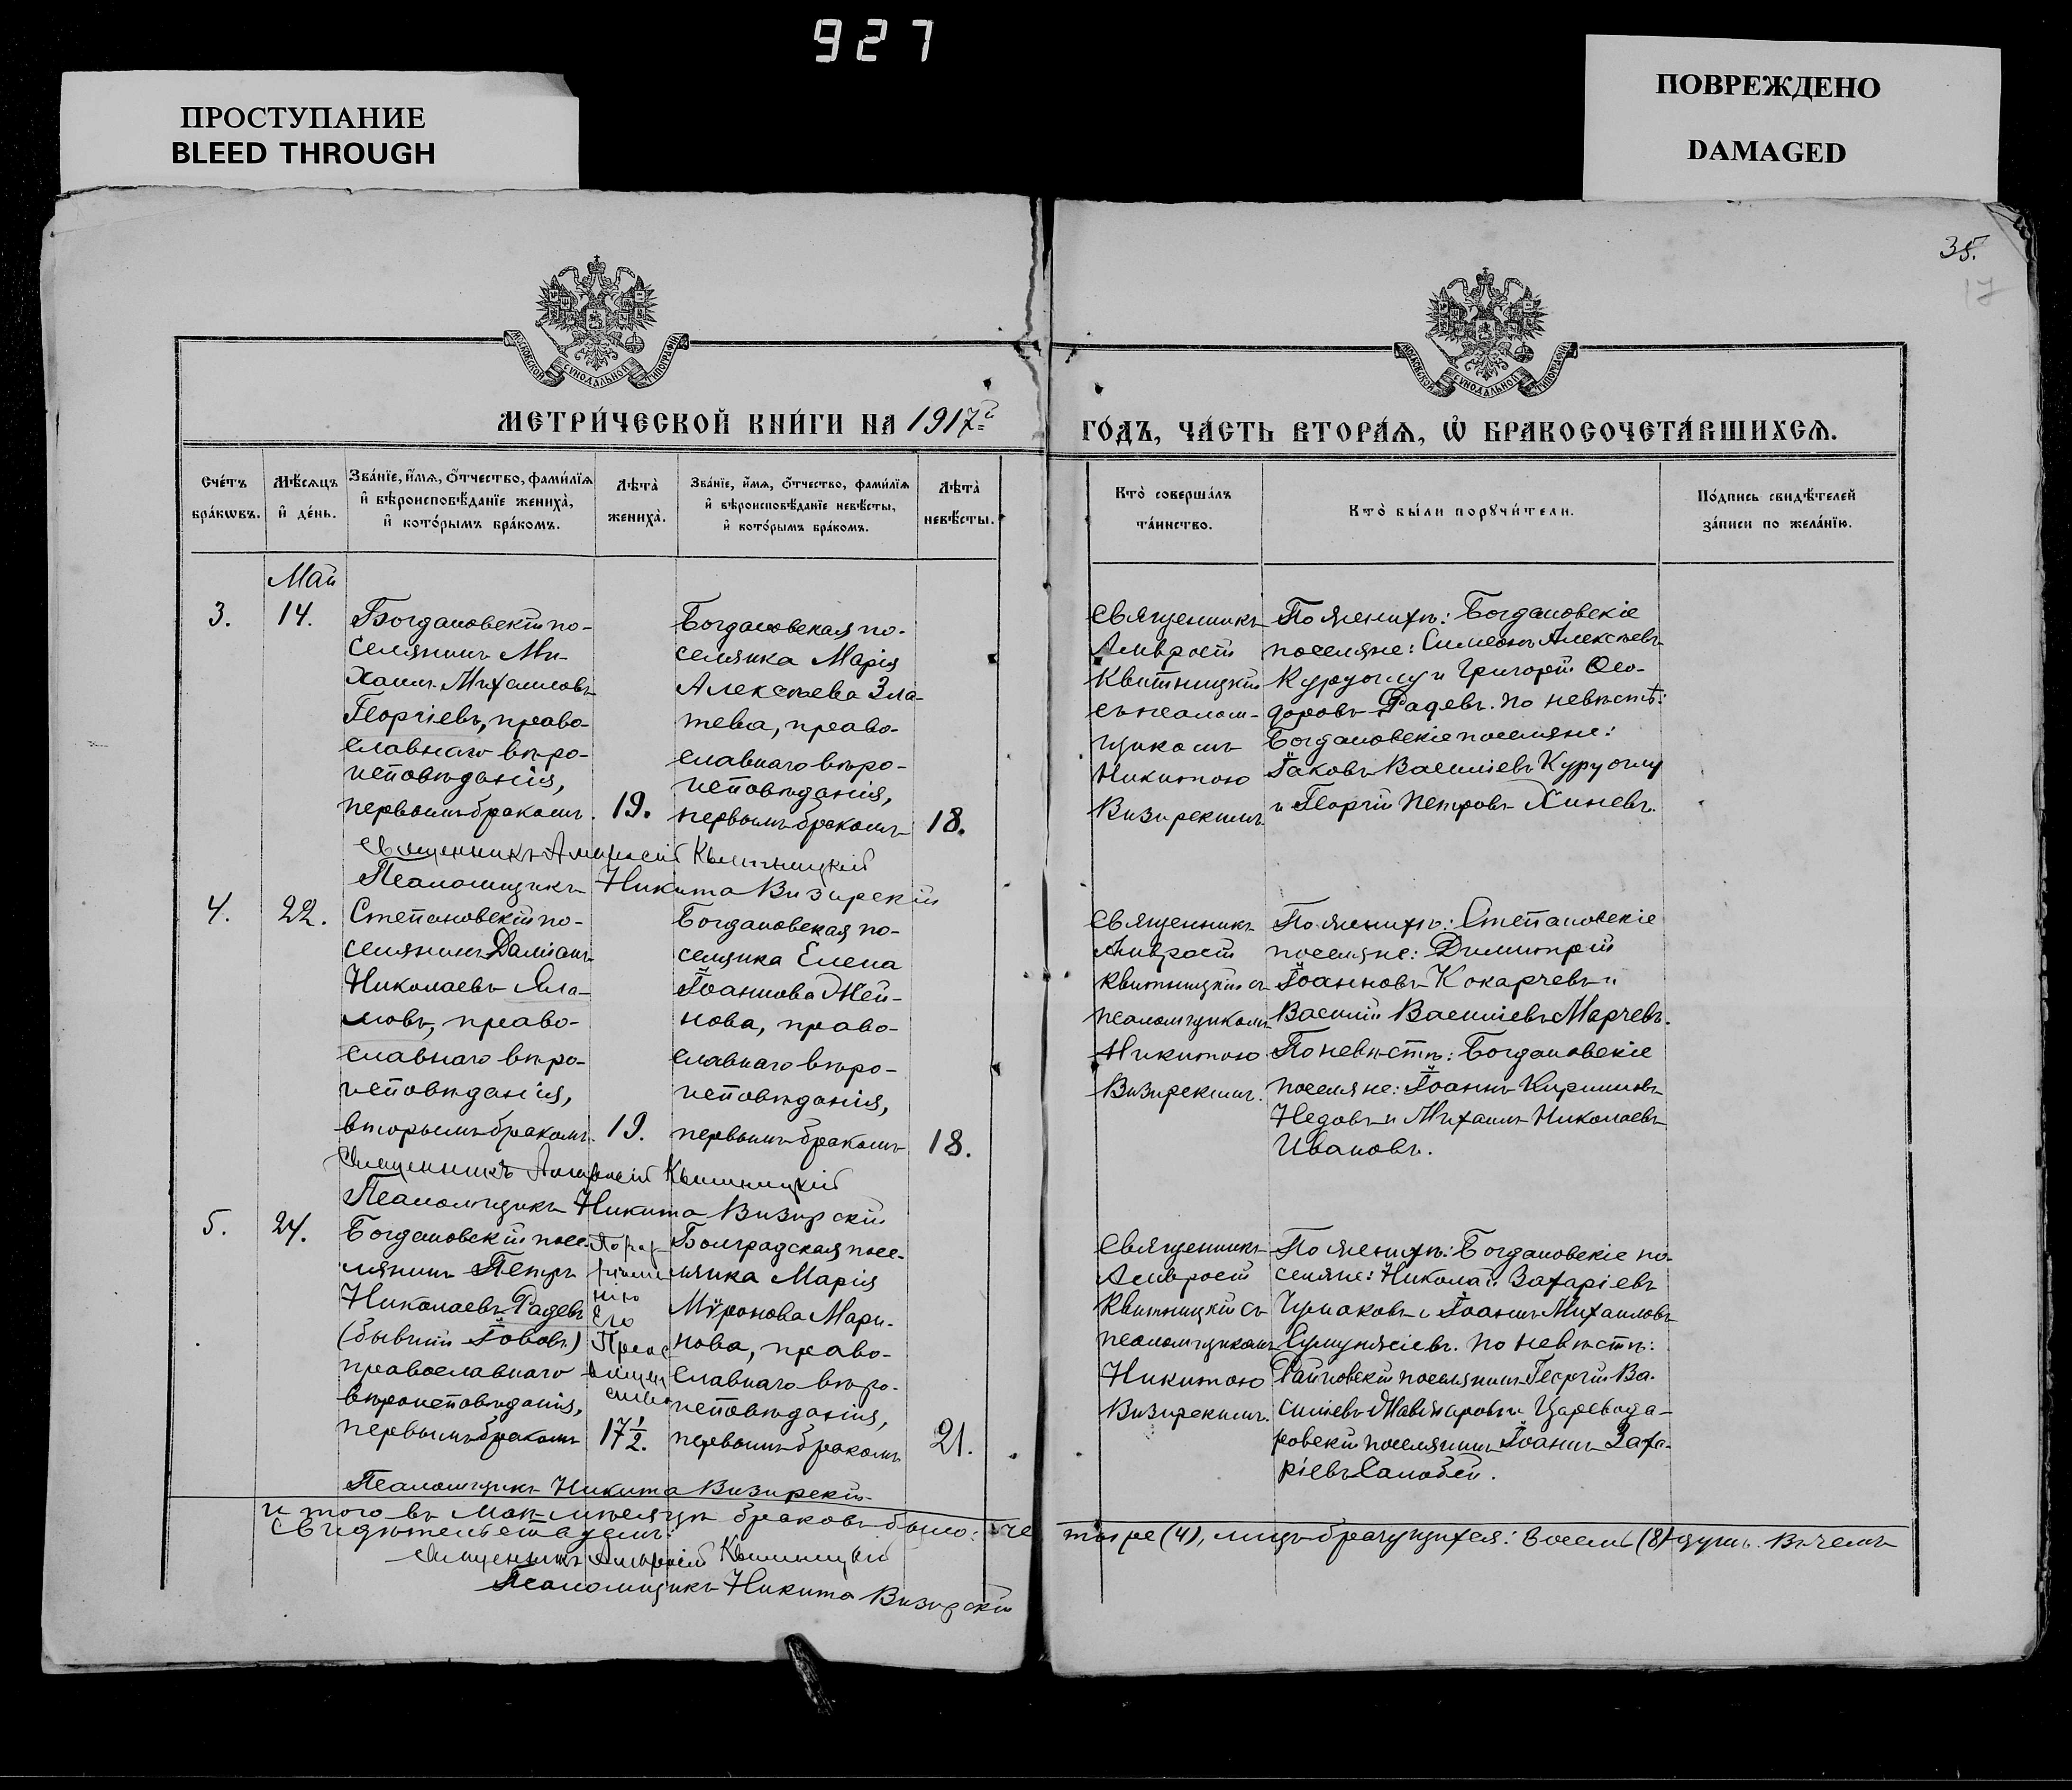 927
ПРОСТУПАНИЕ
BLEED THROUGH
ПОВРЕЖДЕНО
DAMAGED
35.
17
МОСКОВСКОЙ СѴНОДАЛЬНОЙ ТИПОГРАФІИ
МОСКОВСКОЙ СѴНОДАЛЬНОЙ ТИПОГРАФІИ
МЕТРИ́ЧЕСКОЙ КНИ́ГИ НА 1917й
ГО́ДЪ, ЧА́СТЬ ВТОРА́Ѧ, Ѡ҆ БРАКОСОЧЕТА́ВШИХСѦ.
Сче́тъ бра́кѡвъ.
Мѣ́сѧцъ и҆ де́нь.
Зва́нїе, и҆́мѧ, ѻ҆́тчество, фами́лїѧ
и҆ вѣроисповѣ́данїе жениха̀,
и҆ кото́рымъ бра́комъ.
Лѣта̀ жениха̀.
Зва́нїе, и҆́мѧ, ѻ҆́тчество, фами́лїѧ
и҆ вѣроисповѣ́данїе невѣ́сты,
и҆ кото́рымъ бра́комъ.
Лѣта̀ невѣ́сты.
Кто̀ соверша́лъ
та́инство.
Кто̀ бы́ли порꙋчи́тели.
По́дпись свидѣ́телей
за́писи по жела́нїю.
Май
3.
14.
Богдановскій по-
селянинъ Ми-
хаилъ Михаиловъ
Георгіевъ, право-
славнаго вѣро-
исповѣданія,
первымъ бракомъ.
19.
Богдановская по-
селянка Марія
Алексѣева Зла-
тева, право-
славнаго вѣро-
исповѣданія,
первымъ бракомъ
18.
Священникъ
Амвросій
Квитницкій
съ псалом-
щикомъ
Никитою
Визирскимъ
По женихѣ: Богдановскіе
поселяне: Симеонъ Алексѣевъ
Куруогл­у и Григорій Ѳео-
доровъ Радевъ. по невѣстѣ:
Богдановскіе поселяне:
Іаковъ Василіевъ Куруоглу
и Георгій Петровъ Хиневъ.
Священникъ Амвросій Квитницкій
Псаломщикъ Никита Визирскій
4.
22.
Степановскій по-
селянинъ Даміанъ
Николаевъ Яла-
мовъ, право-
славнаго вѣро-
исповѣданія,
вторымъ бракомъ.
19.
Богдановская по-
селянка Елена
Іоаннова Жей-
нова, право-
славнаго вѣро-
исповѣданія,
первымъ бракомъ
18.
Священникъ
Амвросій
Квитницкій съ
псаломщикомъ
Никитою
Визирскимъ.
По женихѣ: Степановскіе
поселяне: Димитрій
Іоанновъ Кокарчевъ и
Василій Василіевъ Марчевъ.
По невѣстѣ: Богдановскіе
поселяне: Іоаннъ Кирилловъ
Недовъ и Михаилъ Николаевъ
Ивановъ.
Священникъ Амвросій Квитницкій
Псаломщикъ Никита Визирскій
5.
24.
Богдановскій посе-
лянинъ Петръ
Николаевъ Радевъ
(бывшій Бововъ)
православнаго
вѣроисповѣданія,
первымъ бракомъ
Его
17 1/2.
Болградская посе-
лянка Марія
Мѵронова Мари-
нова, право-
славнаго вѣро-
исповѣданія,
первымъ бракомъ
21.
Священникъ
Амвросій
Квитницкій съ
псаломщикомъ
Никитою
Визирскимъ.
По женихѣ: Богдановскіе по-
селяне: Николай Захаріевъ
и Іоаннъ Михаиловъ
по невѣстѣ:
поселянинъ Георгій Ва-
силіевъ и Царевода-
ровскій поселянинъ Іоаннъ Заха-
ріевъ
Псаломщикъ Никита Визирскій
Итого въ маѣ мѣсяцѣ браковъ было: че
тыре (4), лицъ брачущихся: восемь (8) душъ. Въ чемъ
свидѣтельствуемъ:
Священникъ Амвросій Квитницкій
Псаломщикъ Никита Визирскій